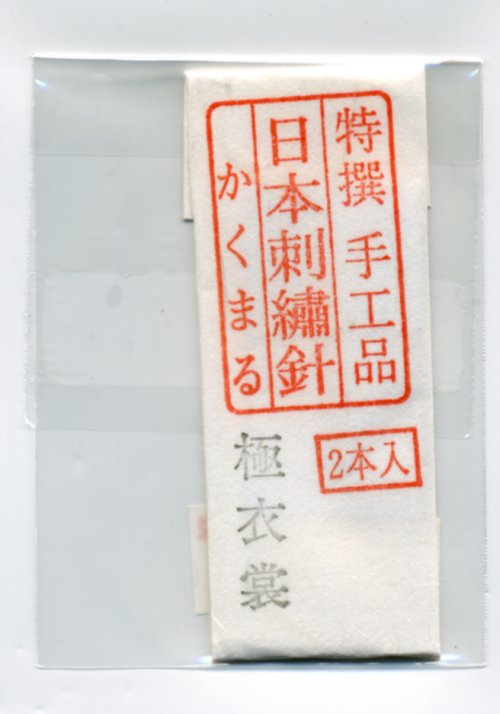 特撰 手工品
日本刺繡針
かくまる
2本入
極衣裳